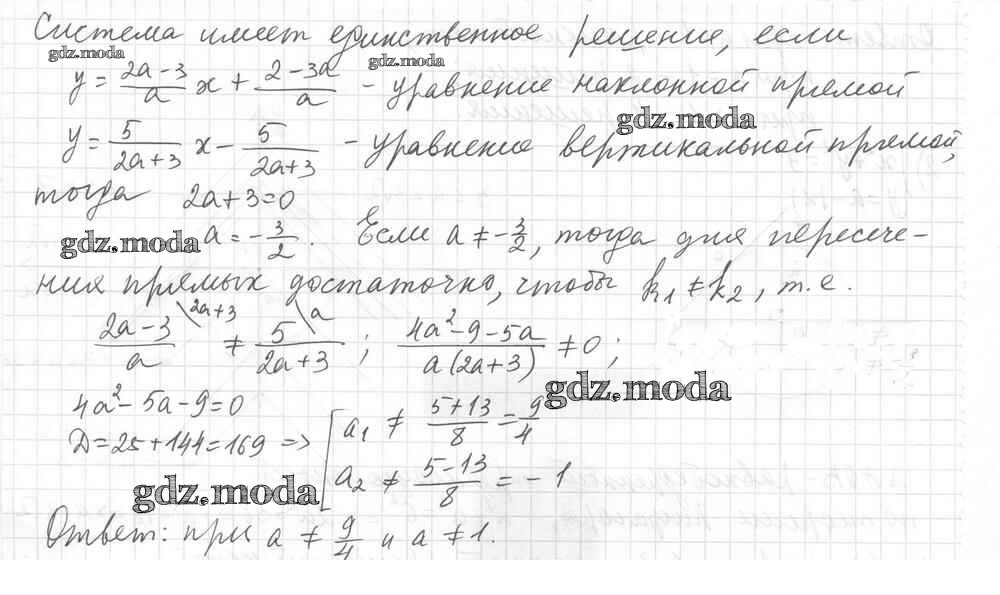 Система имеет единственное решение, если
gdz.moda gdz.moda
y = \frac{2a-3}{a} x + \frac{2-3a}{a} - уравнение наклонной прямой
gdz.moda
y = \frac{5}{2a+3} x - \frac{5}{2a+3} - уравнение вертикальной прямой,
тогда 2a+3=0
gdz.moda a = -\frac{3}{2}. Если a ≠ -\frac{3}{2}, тогда для пересече-
ния прямых достаточно, чтобы k₁ ≠ k₂, т.е.
\frac{2a-3}{a} \2a+3 ≠ \frac{5}{2a+3} \a ; \frac{4a²-9-5a}{a(2a+3)} ≠ 0;
gdz.moda
4a²-5a-9=0
D=25+144=169 => [ a₁ ≠ \frac{5+13}{8} = \frac{9}{4}
a₂ ≠ \frac{5-13}{8} = -1
gdz.moda
Ответ: при a ≠ \frac{9}{4} и a ≠ 1.